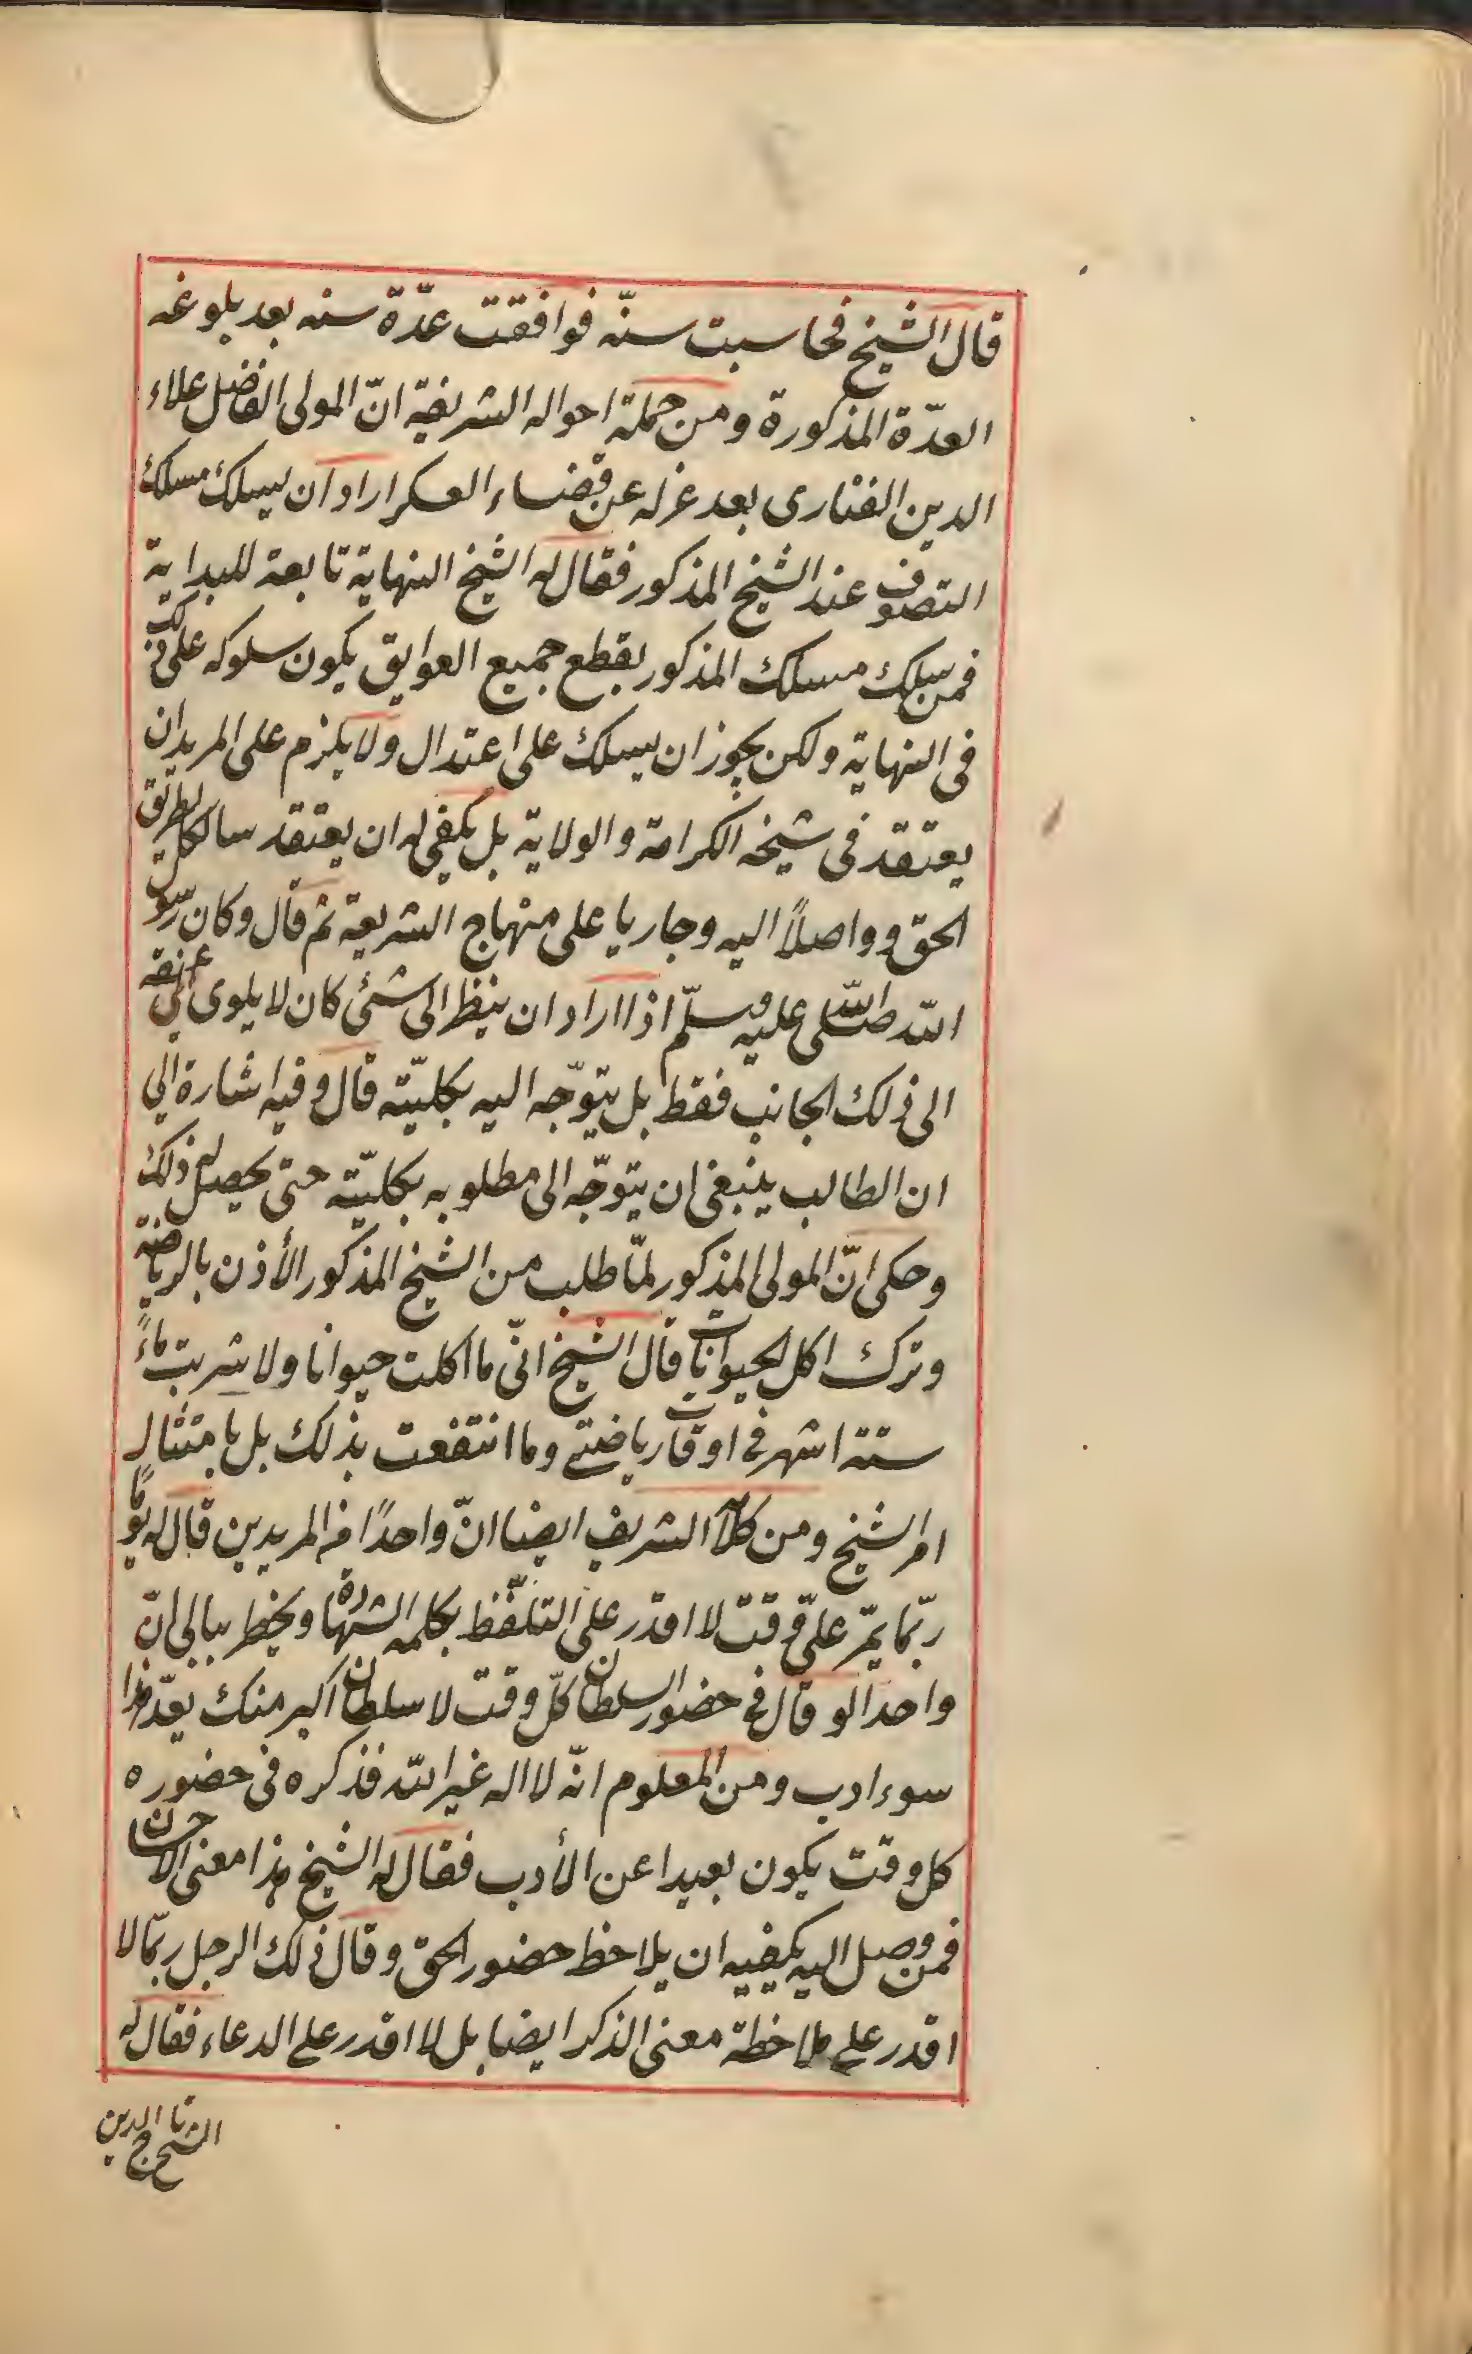 قال الشيخ فحاسبت سنّه فوافقت عدّة سنه بعد بلوغه
العدّة المذكورة ومن جملة احواله الشريفة انّ المولى الفاضل علاء
الدين الفنارى بعد عزله عن قضاء العسكر اراد ان يسلك مسلك
التصوف عند الشيخ المذكور فقال له الشيخ النهاية تابعة للبداية
فمن سلك مسلك المذكور بقطع جميع العوايق يكون سلوكه على ذلك
فى النهاية ولكن يجوز ان يسلك على اعتدال ولا يلزم على المريد ان
يعتقد فى شيخه الكرامة والولاية بل يكفى له ان يعتقد سالكا لطريق
الحق وواصلاً اليه وجاريا على منهاج الشريعة ثم قال وكان رسول
الله صلى الله عليه وسلّم اذا اراد ان ينظر الى شئ كان لا يلوى عنقه الى
الى ذلك الجانب فقط بل يتوجّه اليه بكليّته قال وفيه اشارة الى
ان الطالب ينبغى ان يتوجّه الى مطلوبه بكليّته حتى يحصل له ذلك
وحكى انّ المولى المذكور لمّا طلب من الشيخ المذكور الأذن بالرياضة
وترك اكل الحيوانات قال الشيخ انّى ما اكلت حيوانا ولا شربت ماءً
ستة اشهر فى اوقات رياضتى وما انتفعت بذلك بل بامتثال
امر الشيخ ومن كلامه الشريف ايضا انّ واحدًا من المريدين قال له يومًا
ربّما يمّر علىّ وقت لا اقدر على التلفّظ بكلمه الشهادة ويخطر ببالى انّ
واحدا لو قال فى حضور السلطان كلّ وقت لا سلطان اكبر منك يعدّ هذا
سوء ادب ومن المعلوم انّه لا اله غير الله فذكره فى حضوره
كل وقت يكون بعيدا عن الأدب فقال له الشيخ هذا معنى الاحسان
فمن وصل اليه يكفيه ان يلاحظ حضور الحق وقال ذلك الرجل ربّما لا
اقدر على ملاحظة معنى الذكر ايضا بل لا اقدر على الدعاء فقال له
الشيخ تاج الدين